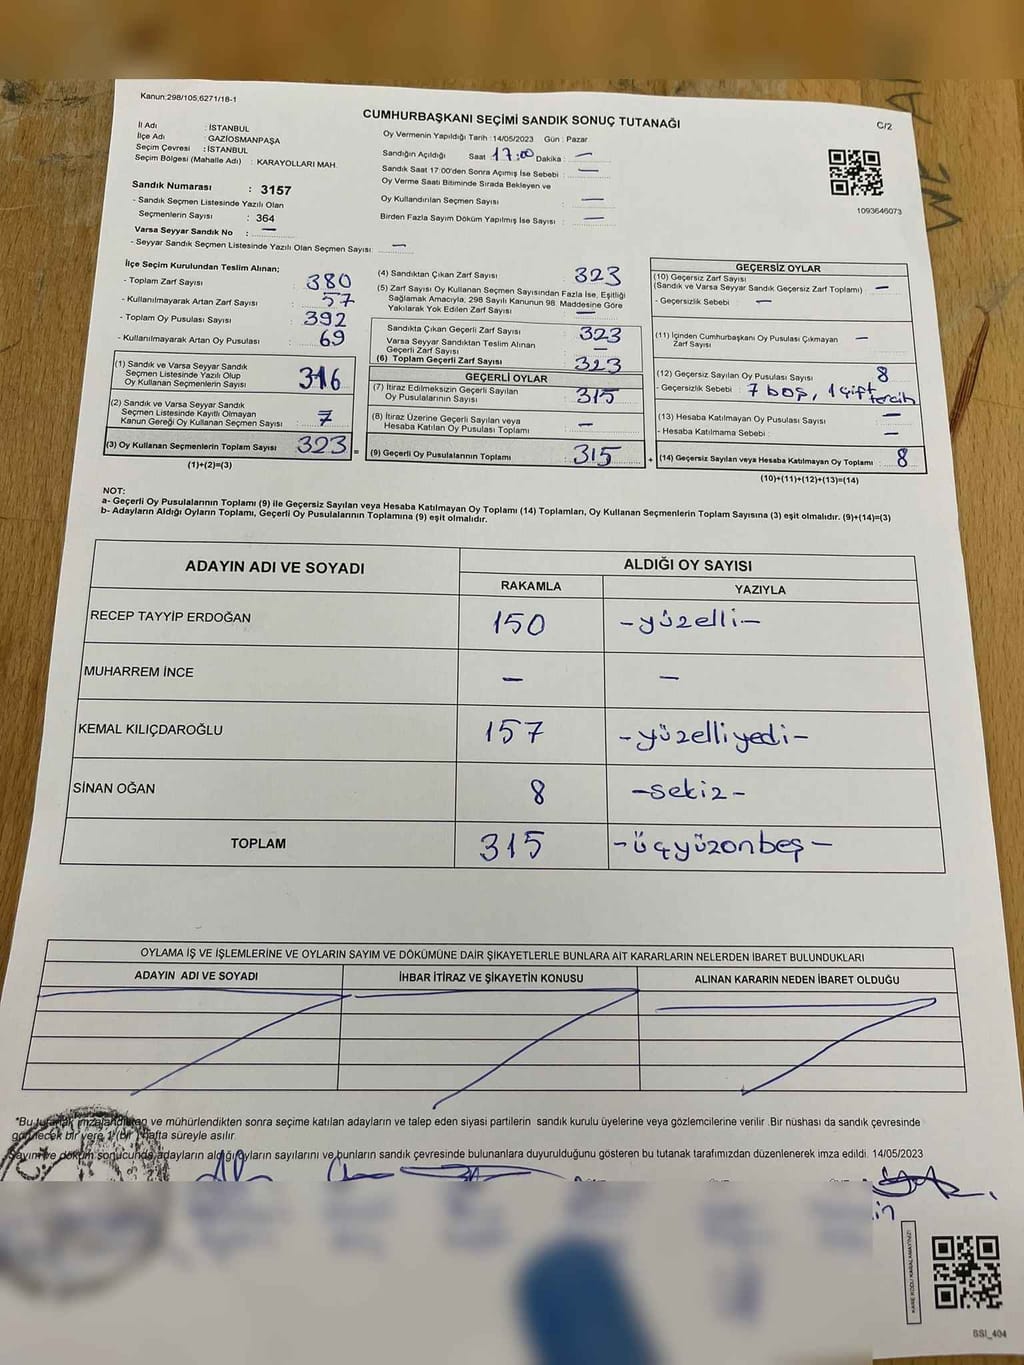 Kanun:298/105,6271/18-1
CUMHURBAŞKANI SEÇİMİ SANDIK SONUÇ TUTANAĞI
C/2
İl Adı : İSTANBUL
İlçe Adı : GAZİOSMANPAŞA
Seçim Çevresi : İSTANBUL
Seçim Bölgesi (Mahalle Adı) : KARAYOLLARI MAH.
Sandık Numarası : 3157
- Sandık Seçmen Listesinde Yazılı Olan
Seçmenlerin Sayısı : 364
Varsa Seyyar Sandık No : —
- Seyyar Sandık Seçmen Listesinde Yazılı Olan Seçmen Sayısı: —
Oy Vermenin Yapıldığı Tarih : 14/05/2023 Gün : Pazar
Sandığın Açıldığı Saat 17:00 Dakika : —
Sandık Saat 17:00'den Sonra Açılmış İse Sebebi : —
Oy Verme Saati Bitiminde Sırada Bekleyen ve
Oy Kullandırılan Seçmen Sayısı : —
Birden Fazla Sayım Döküm Yapılmış İse Sayısı : —
1093646073
İlçe Seçim Kurulundan Teslim Alınan;
- Toplam Zarf Sayısı : 380
- Kullanılmayarak Artan Zarf Sayısı : 57
- Toplam Oy Pusulası Sayısı : 392
- Kullanılmayarak Artan Oy Pusulası : 69
(1) Sandık ve Varsa Seyyar Sandık
Seçmen Listesinde Yazılı Olup
Oy Kullanan Seçmenlerin Sayısı : 316
(2) Sandık ve Varsa Seyyar Sandık
Seçmen Listesinde Kayıtlı Olmayan
Kanun Gereği Oy Kullanan Seçmen Sayısı : 7
(3) Oy Kullanan Seçmenlerin Toplam Sayısı : 323
(1)+(2)=(3)
(4) Sandıktan Çıkan Zarf Sayısı : 323
(5) Zarf Sayısı Oy Kullanan Seçmen Sayısından Fazla İse, Eşitliği
Sağlamak Amacıyla, 298 Sayılı Kanunun 98. Maddesine Göre
Yakılarak Yok Edilen Zarf Sayısı : —
Sandıkta Çıkan Geçerli Zarf Sayısı : 323
Varsa Seyyar Sandıktan Teslim Alınan
Geçerli Zarf Sayısı : —
(6) Toplam Geçerli Zarf Sayısı : 323
GEÇERLİ OYLAR
(7) İtiraz Edilmeksizin Geçerli Sayılan
Oy Pusulalarının Sayısı : 315
(8) İtiraz Üzerine Geçerli Sayılan veya
Hesaba Katılan Oy Pusulası Toplamı : —
(9) Geçerli Oy Pusulalarının Toplamı : 315
GEÇERSİZ OYLAR
(10) Geçersiz Zarf Sayısı
(Sandık ve Varsa Seyyar Sandık Geçersiz Zarf Toplamı) : —
- Geçersizlik Sebebi : —
(11) İçinden Cumhurbaşkanı Oy Pusulası Çıkmayan
Zarf Sayısı : —
(12) Geçersiz Sayılan Oy Pusulası Sayısı : 8
- Geçersizlik Sebebi : 7 boş, 1 çift tercih
(13) Hesaba Katılmayan Oy Pusulası Sayısı : —
- Hesaba Katılmama Sebebi : —
(14) Geçersiz Sayılan veya Hesaba Katılmayan Oy Toplamı : 8
(10)+(11)+(12)+(13)=(14)
NOT:
a- Geçerli Oy Pusulalarının Toplamı (9) ile Geçersiz Sayılan veya Hesaba Katılmayan Oy Toplamı (14) Toplamları, Oy Kullanan Seçmenlerin Toplam Sayısına (3) eşit olmalıdır. (9)+(14)=(3)
b- Adayların Aldığı Oyların Toplamı, Geçerli Oy Pusulalarının Toplamına (9) eşit olmalıdır.
ADAYIN ADI VE SOYADI
ALDIĞI OY SAYISI
RAKAMLA YAZIYLA
RECEP TAYYİP ERDOĞAN 150 -yüzelli-
MUHARREM İNCE — —
KEMAL KILIÇDAROĞLU 157 -yüzelliyedi-
SİNAN OĞAN 8 -sekiz-
TOPLAM 315 -üçyüzonbeş-
OYLAMA İŞ VE İŞLEMLERİNE VE OYLARIN SAYIM VE DÖKÜMÜNE DAİR ŞİKAYETLERLE BUNLARA AİT KARARLARIN NELERDEN İBARET BULUNDUKLARI
ADAYIN ADI VE SOYADI İHBAR İTİRAZ VE ŞİKAYETİN KONUSU ALINAN KARARIN NEDEN İBARET OLDUĞU
*Bu tutanak imzalandıktan ve mühürlendikten sonra seçime katılan adayların ve talep eden siyasi partilerin sandık kurulu üyelerine veya gözlemcilerine verilir .Bir nüshası da sandık çevresinde
görülecek bir yere 1 (bir) hafta süreyle asılır.
Sayım ve döküm sonucunda adayların aldığı oyların sayılarını ve bunların sandık çevresinde bulunanlara duyurulduğunu gösteren bu tutanak tarafımızdan düzenlenerek imza edildi. 14/05/2023
KARE KODU KARALAMAYINIZ!
SSI_404